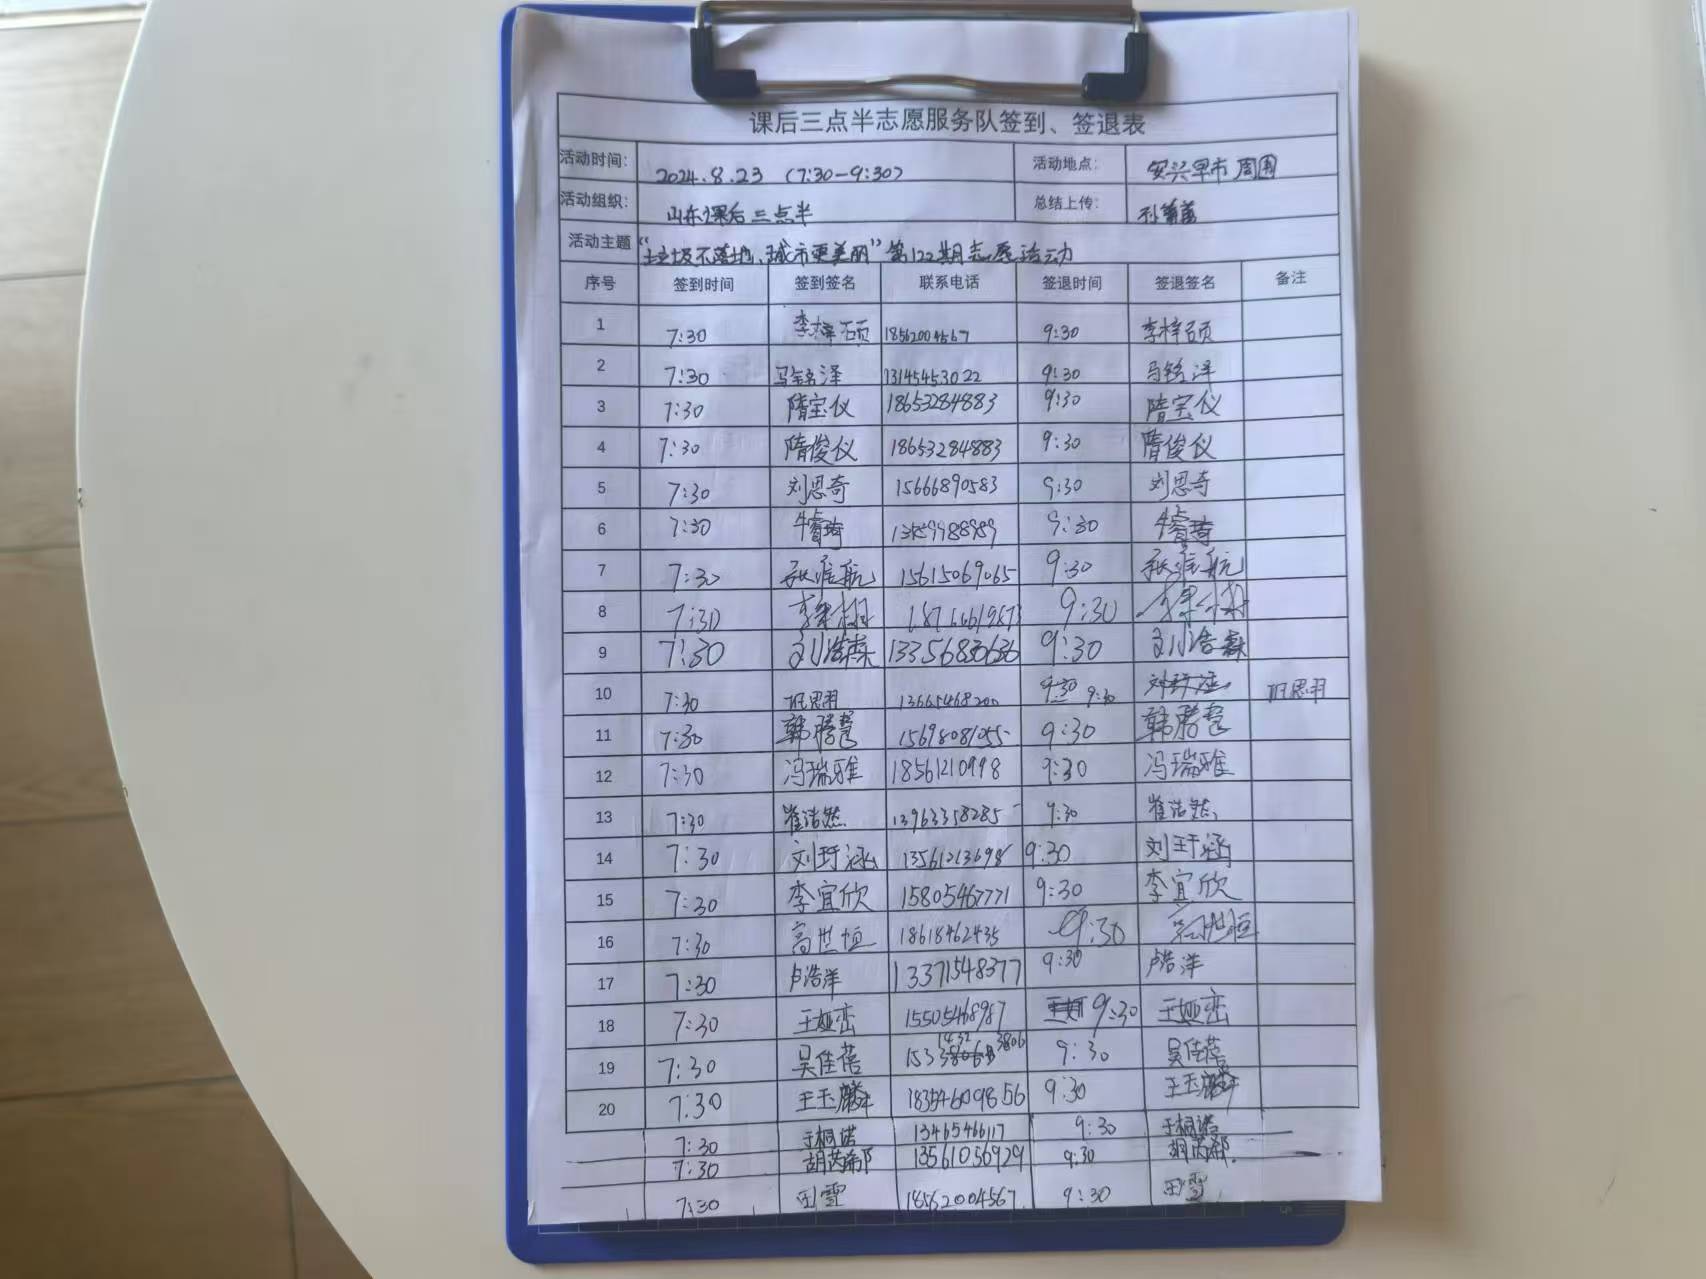 课后三点半志愿服务队签到、签退表
活动时间： 2024.8.23 (7:30-9:30) 活动地点： 安兴早市周围
活动组织： 山东课后三点半 总结上传：
活动主题 “垃圾不落地、城市更美丽”第122期志愿活动
序号 签到时间 签到签名 联系电话 签退时间 签退签名 备注
1 7:30 李梓硕 18562004567 9:30 李梓硕
2 7:30 马铭泽 13145453022 9:30 马铭泽
3 7:30 隋宝仪 18653284883 9:30 隋宝仪
4 7:30 隋俊仪 18653284883 9:30 隋俊仪
5 7:30 刘思奇 15666890583 9:30 刘思奇
6 7:30 牛睿琦 9:30 牛睿琦
7 7:30 张维航 15615069065 9:30 张维航
8 7:30 9:30
9 7:30 刘浩森 9:30 刘浩森
10 7:30 13665468200 9:30 9:30
11 7:30 15698081055 9:30
12 7:30 冯瑞雅 18561210998 9:30 冯瑞雅
13 7:30 崔浩然 13963358285 9:30 崔浩然
14 7:30 刘玗涵 13561213698 9:30 刘玗涵
15 7:30 李宜欣 15805467771 9:30 李宜欣
16 7:30 高世恒 18618462435 9:30 高世恒
17 7:30 卢浩洋 13371548377 9:30 卢浩洋
18 7:30 王娅峦 15505468987 9:30 王娅峦
19 7:30 吴佳蓓 9:30 吴佳蓓
20 7:30 王玉麟 18354609856 9:30 王玉麟
7:30 于桐诺 13465466117 9:30 于桐诺
7:30 胡芮郗 13561056929 9:30 胡芮郗
7:30 田雪 18562004567 9:30 田雪